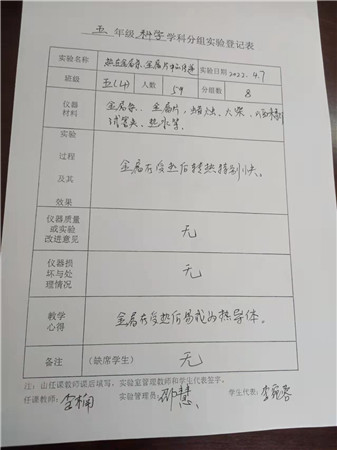 五 年级 科学 学科分组实验登记表
实验名称 热在金属条、金属片中的传递 实验日期 2022.4.7
班级 五(4) 人数 59 分组数 8
仪器 金属条、金属片、蜡烛、火柴、
材料 试管夹、热水等.
实验
过程
及其 金属在受热后转热特别快。
效果
仪器质量
或实验 无
改进意见
仪器损
坏与处 无
理情况
教学 金属在受热后易成为热导体。
心得
备注 (缺席学生) 无
注：由任课教师课前填写，实验室管理教师和学生代表签字。
任课教师: 实验管理员: 邵慧 学生代表: